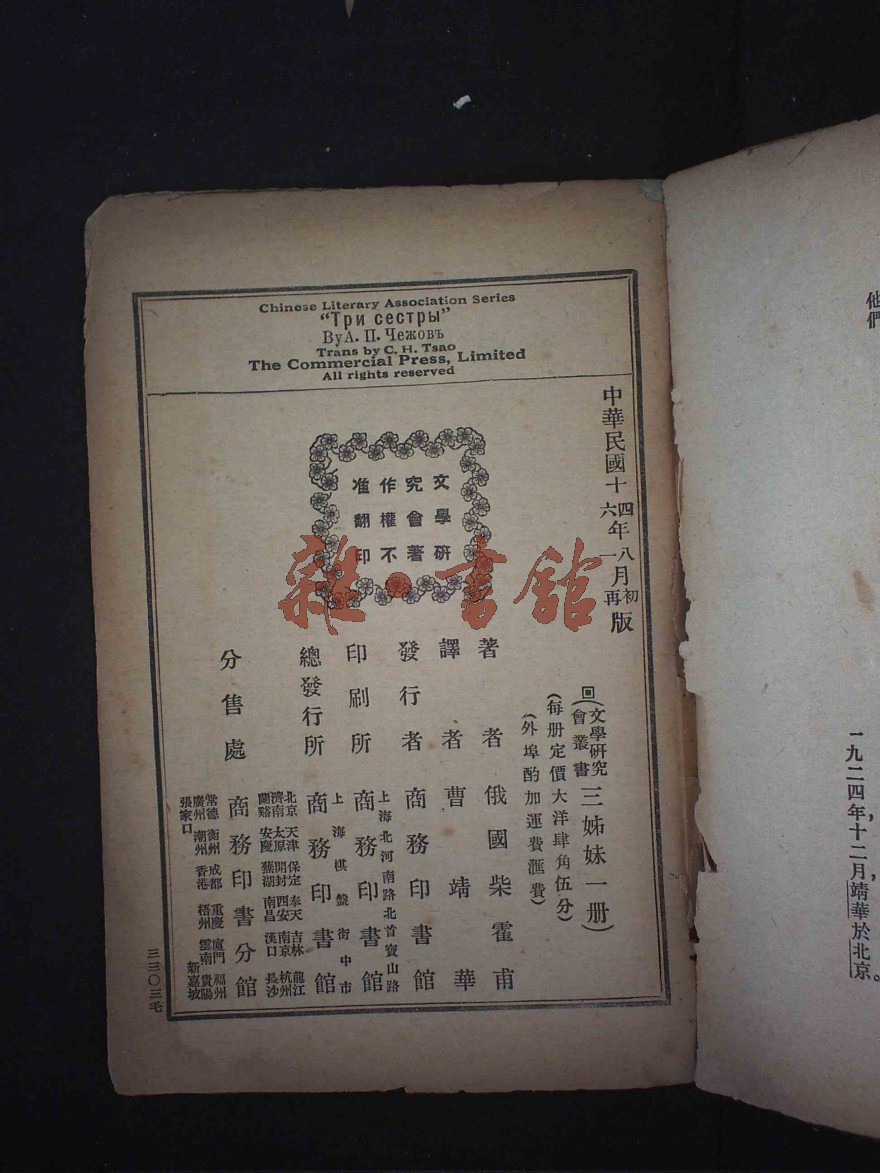 Chinese Literary Association Series
"Три сестры"
By А. П. Чежовъ
Trans by C. H. Tsao
The Commercial Press, Limited
All rights reserved
中華民國十四年八月初版
六年一月再版
文學研
究會著
作權不
准翻印
雜·書館
回(文學研究會叢書 三姊妹一册)
(每册定價大洋肆角伍分)
(外埠酌加運費滙費)
著者 俄國柴霍甫
譯者 曹靖華
發行者 商務印書館
上海北河南路北首寶山路
印刷所 商務印書館
上海棋盤街中市
總發行所 商務印書館
北京 天津 保定 奉天 吉林 龍江
濟南 太原 開封 西安 南京 杭州
蘭谿 安慶 蕪湖 南昌 漢口 長沙
分售處 商務印書分館
常德 衡州 成都 重慶 廈門 福州
廣州 潮州 香港 梧州 雲南 貴陽
張家口 新嘉坡
三三〇三毛
他們
一九二四年十二月,靖華於北京。